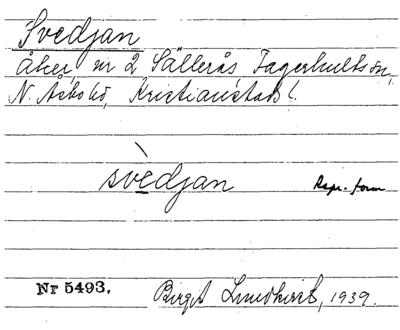 Svedjan
åker, nr 2 Sällerås Fagerhults sn,
N. Åsbo hd, Kristianstads l.
svèdjan
Repr.-form
Nr 5493.
Birgit Lundkvist, 1939.